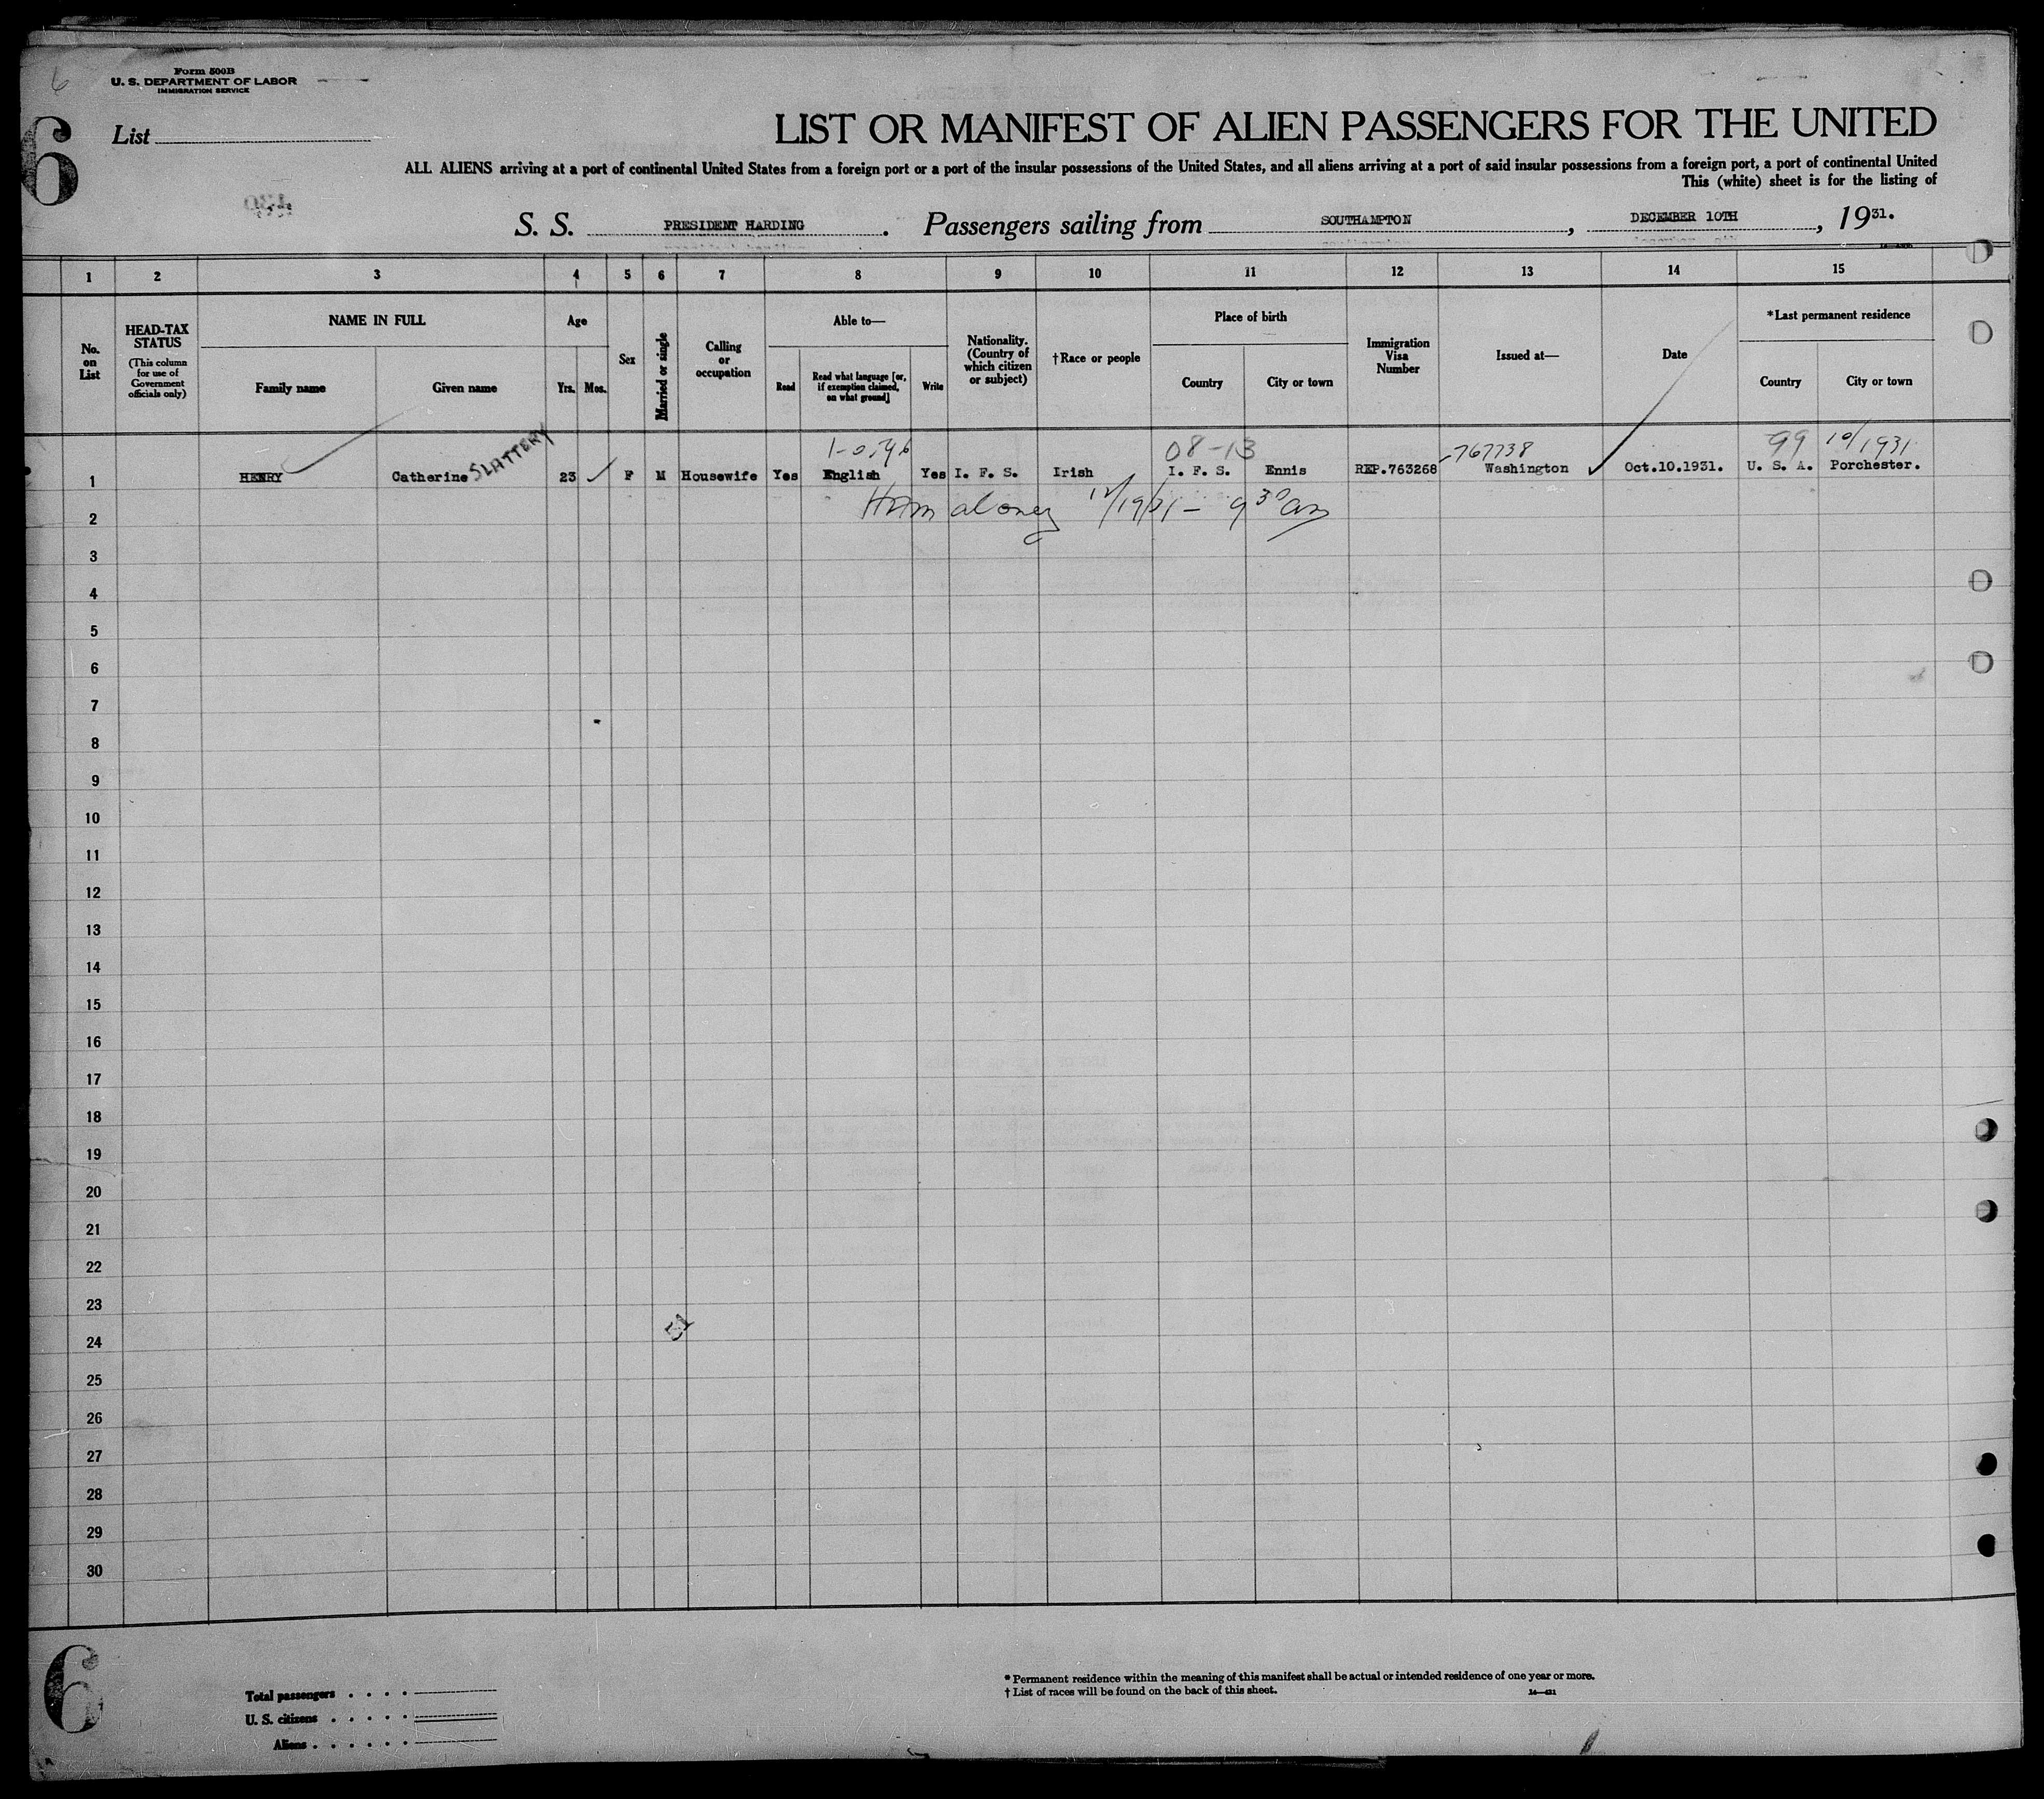 6
Form 500B
U. S. DEPARTMENT OF LABOR
IMMIGRATION SERVICE
6
List
LIST OR MANIFEST OF ALIEN PASSENGERS FOR THE UNITED
ALL ALIENS arriving at a port of continental United States from a foreign port or a port of the insular possessions of the United States, and all aliens arriving at a port of said insular possessions from a foreign port, a port of continental United
This (white) sheet is for the listing of
S. S. PRESIDENT HARDING . Passengers sailing from SOUTHAMPTON , DECEMBER 10TH , 1931.
1 2 3 4 5 6 7 8 9 10 11 12 13 14 15
No. on List
HEAD-TAX STATUS (This column for use of Government officials only)
NAME IN FULL
Family name Given name
Age
Yrs. Mos.
Sex
Married or single
Calling or occupation
Able to—
Read Read what language [or, if exemption claimed, on what ground] Write
Nationality. (Country of which citizen or subject)
†Race or people
Place of birth
Country City or town
Immigration Visa Number
Issued at—
Date
*Last permanent residence
Country City or town
08-13 767738 99 10/1931
1 HENRY Catherine SLATTERY 23 F M Housewife Yes English Yes I. F. S. Irish I. F. S. Ennis REP.763268 Washington Oct.10.1931. U. S. A. Porchester.
2
3
4
5
6
7
8
9
10
11
12
13
14
15
16
17
18
19
20
21
22
23
24
25
26
27
28
29
30
6
Total passengers . . . .
U. S. citizens . . . . .
Aliens . . . . . .
* Permanent residence within the meaning of this manifest shall be actual or intended residence of one year or more.
† List of races will be found on the back of this sheet.